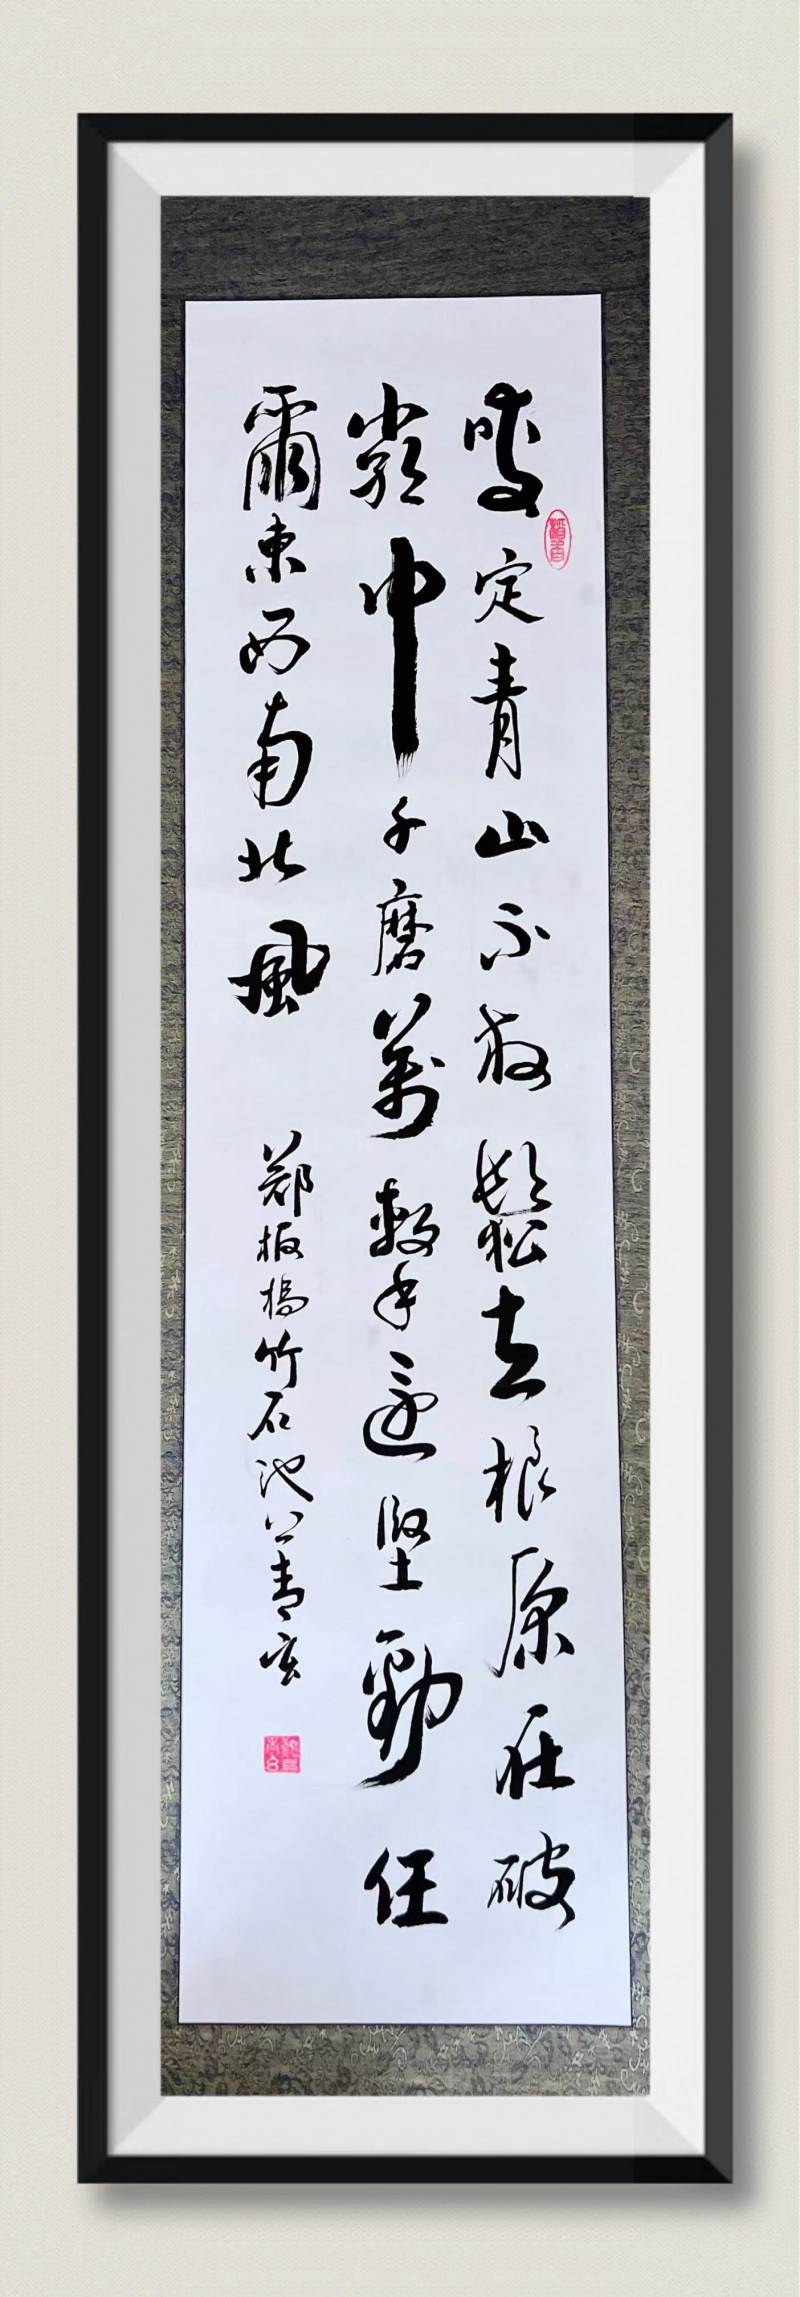 咬定青山不放鬆立根原在破
巖中千磨萬擊還堅勁任
爾東西南北風
鄭板橋竹石池